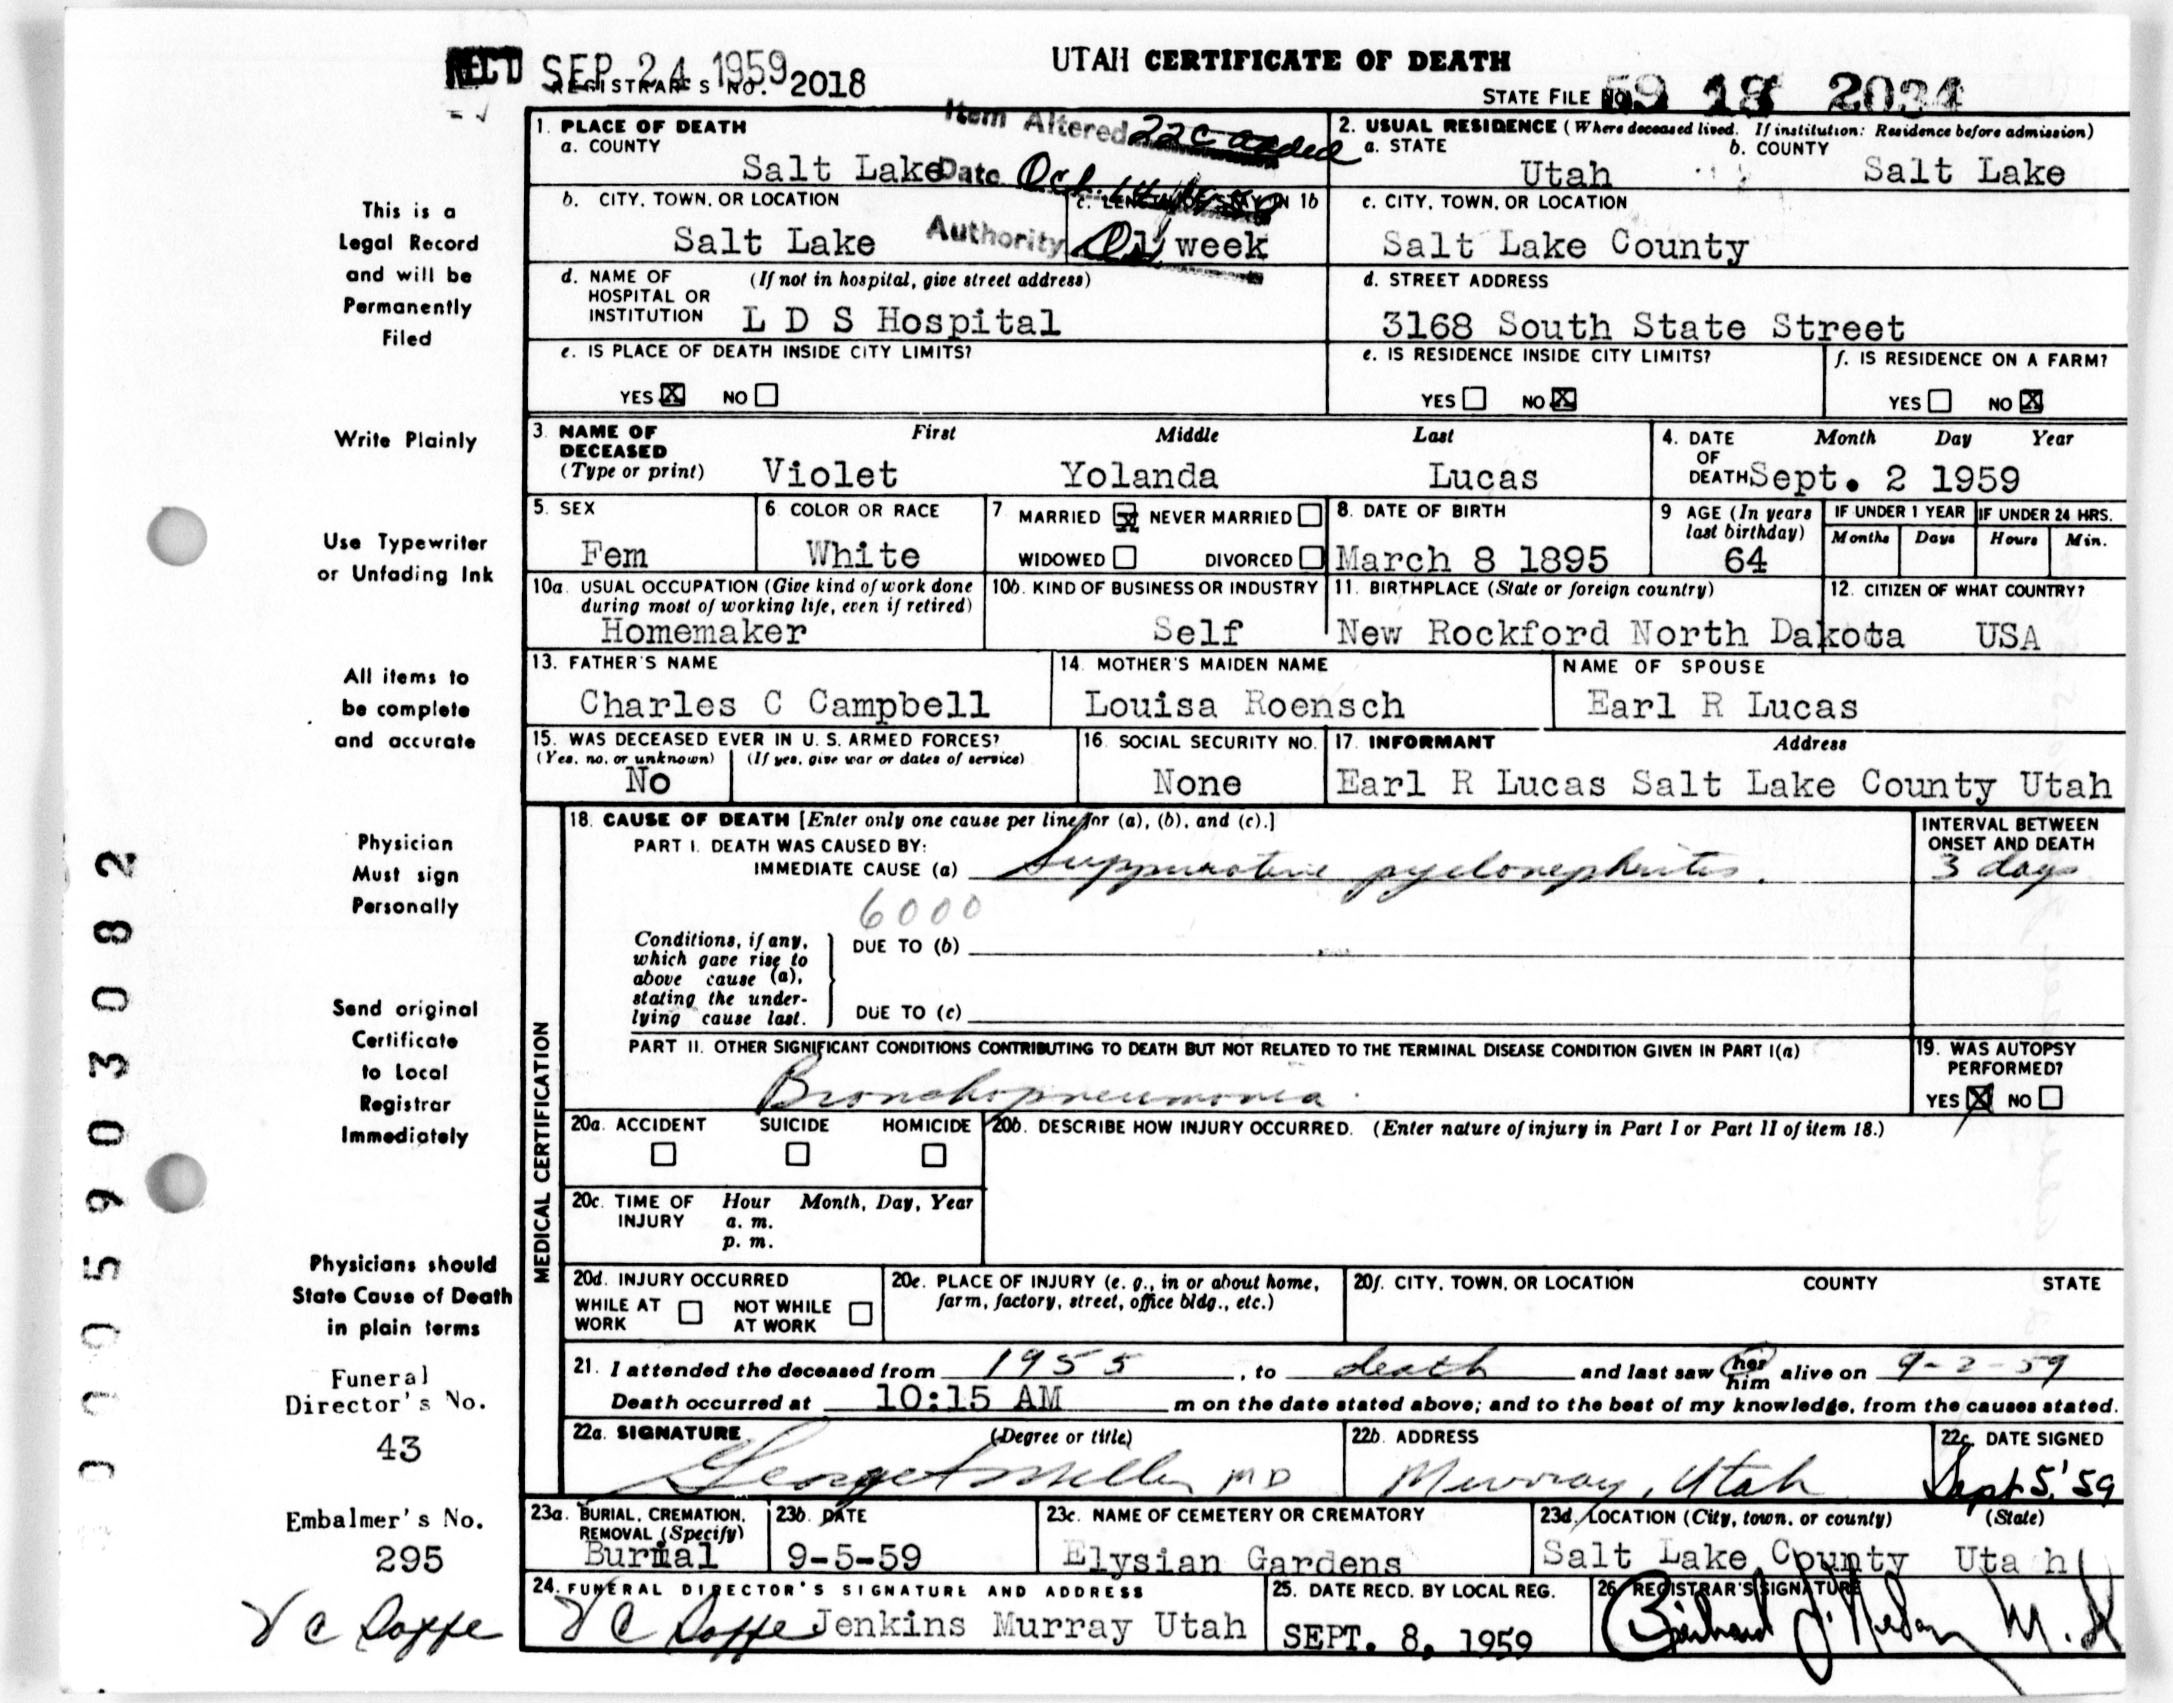 REC'D SEP 24 1959
UTAH CERTIFICATE OF DEATH
REGISTRAR'S NO. 2018
STATE FILE NO. 59 18 2034
Item Altered 22c added
Date Oct. 14
Authority
1. PLACE OF DEATH
a. COUNTY
Salt Lake
2. USUAL RESIDENCE (Where deceased lived. If institution: Residence before admission)
a. STATE b. COUNTY
Utah Salt Lake
b. CITY, TOWN, OR LOCATION
Salt Lake
c. LENGTH OF STAY IN 1b
1 week
c. CITY, TOWN, OR LOCATION
Salt Lake County
d. NAME OF HOSPITAL OR INSTITUTION (If not in hospital, give street address)
L D S Hospital
d. STREET ADDRESS
3168 South State Street
e. IS PLACE OF DEATH INSIDE CITY LIMITS?
YES X NO
e. IS RESIDENCE INSIDE CITY LIMITS?
YES NO X
f. IS RESIDENCE ON A FARM?
YES NO X
3. NAME OF DECEASED (Type or print) First Middle Last
Violet Yolanda Lucas
4. DATE OF DEATH Month Day Year
Sept. 2 1959
5. SEX
Fem
6. COLOR OR RACE
White
7. MARRIED X NEVER MARRIED
WIDOWED DIVORCED
8. DATE OF BIRTH
March 8 1895
9. AGE (In years last birthday)
64
IF UNDER 1 YEAR
Months Days
IF UNDER 24 HRS.
Hours Min.
10a. USUAL OCCUPATION (Give kind of work done during most of working life, even if retired)
Homemaker
10b. KIND OF BUSINESS OR INDUSTRY
Self
11. BIRTHPLACE (State or foreign country)
New Rockford North Dakota
12. CITIZEN OF WHAT COUNTRY?
USA
13. FATHER'S NAME
Charles C Campbell
14. MOTHER'S MAIDEN NAME
Louisa Roensch
NAME OF SPOUSE
Earl R Lucas
15. WAS DECEASED EVER IN U. S. ARMED FORCES?
(Yes, no, or unknown) (If yes, give war or dates of service)
No
16. SOCIAL SECURITY NO.
None
17. INFORMANT Address
Earl R Lucas Salt Lake County Utah
MEDICAL CERTIFICATION
18. CAUSE OF DEATH [Enter only one cause per line for (a), (b), and (c).]
PART I. DEATH WAS CAUSED BY:
IMMEDIATE CAUSE (a) Suppurative pyelonephritis.
INTERVAL BETWEEN ONSET AND DEATH
3 days
6000
Conditions, if any, which gave rise to above cause (a), stating the underlying cause last.
DUE TO (b)
DUE TO (c)
PART II. OTHER SIGNIFICANT CONDITIONS CONTRIBUTING TO DEATH BUT NOT RELATED TO THE TERMINAL DISEASE CONDITION GIVEN IN PART I(a)
Bronchopneumonia.
19. WAS AUTOPSY PERFORMED?
YES X NO
20a. ACCIDENT SUICIDE HOMICIDE
20b. DESCRIBE HOW INJURY OCCURRED. (Enter nature of injury in Part I or Part II of item 18.)
20c. TIME OF INJURY Hour Month, Day, Year
a. m.
p. m.
20d. INJURY OCCURRED
WHILE AT WORK NOT WHILE AT WORK
20e. PLACE OF INJURY (e. g., in or about home, farm, factory, street, office bldg., etc.)
20f. CITY, TOWN, OR LOCATION COUNTY STATE
21. I attended the deceased from 1955, to death and last saw her him alive on 9-2-59
Death occurred at 10:15 AM m on the date stated above; and to the best of my knowledge, from the causes stated.
22a. SIGNATURE (Degree or title)
George A Miller MD
22b. ADDRESS
Murray, Utah
22c. DATE SIGNED
Sept 5, '59
23a. BURIAL, CREMATION, REMOVAL (Specify)
Burial
23b. DATE
9-5-59
23c. NAME OF CEMETERY OR CREMATORY
Elysian Gardens
23d. LOCATION (City, town, or county) (State)
Salt Lake County Utah
24. FUNERAL DIRECTOR'S SIGNATURE AND ADDRESS
Jenkins Murray Utah
25. DATE RECD. BY LOCAL REG.
SEPT. 8, 1959
26. REGISTRAR'S SIGNATURE
This is a
Legal Record
and will be
Permanently
Filed
Write Plainly
Use Typewriter
or Unfading Ink
All items to
be complete
and accurate
Physician
Must sign
Personally
Send original
Certificate
to Local
Registrar
Immediately
Physicians should
State Cause of Death
in plain terms
Funeral
Director's No.
43
Embalmer's No.
295
005903082